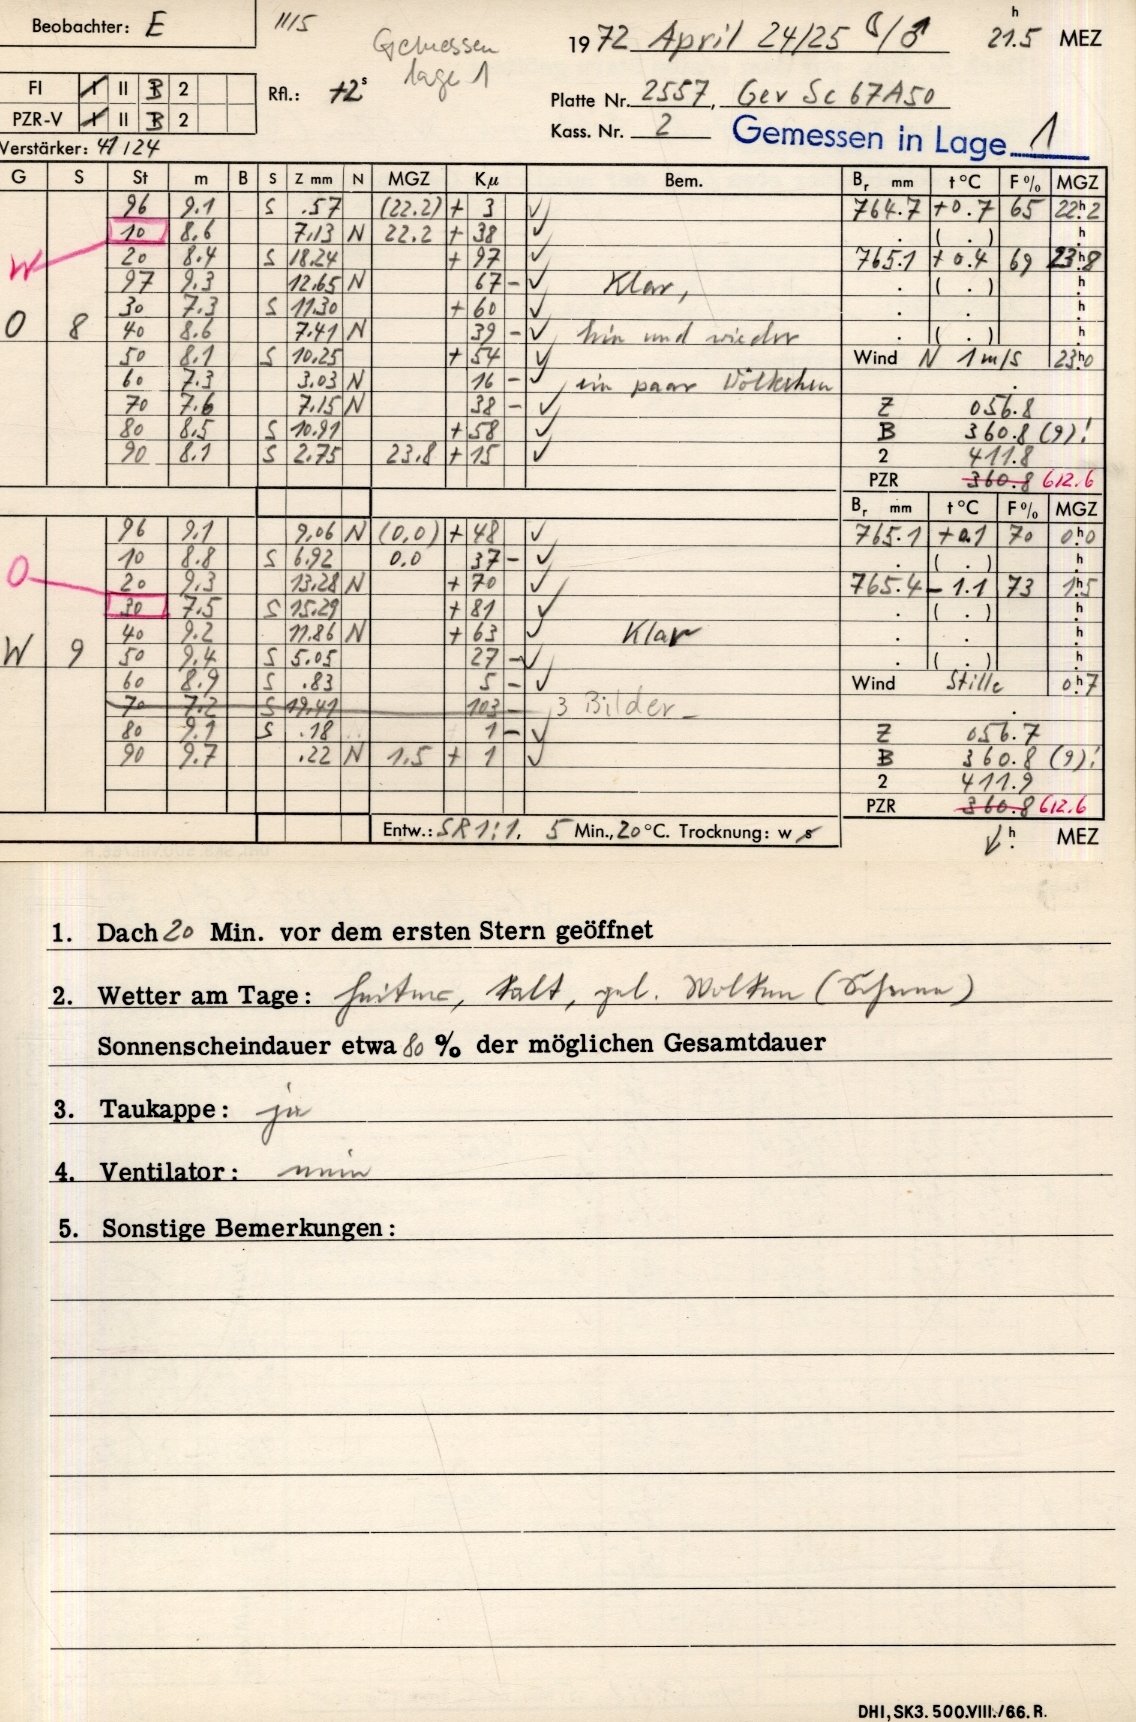 Beobachter: E
11/5
Gemessen
Lage 1
1972 April 24/25 ☾/♂ 21.5 h MEZ
FI I II B 2
PZR-V I II B 2
Rfl.: +2 s
Platte Nr. 2557, Gev Sc 67A50
Kass. Nr. 2
Gemessen in Lage 1
Verstärker: 41/24
G S St m B S Z mm N MGZ Kμ Bem. Br mm t °C F % MGZ
96 9.1 S .57 (22.2) + 3 ✓ 764.7 +0.7 65 22h2
10 8.6 7.13 N 22.2 + 38 ✓ . ( . ) h
W 20 8.4 S 18.24 + 97 ✓ 765.1 +0.4 69 23h8
97 9.3 12.65 N 67 – ✓ Klar, . ( . ) h
30 7.3 S 11.30 + 60 ✓ . . h
O 8 40 8.6 7.41 N 39 – ✓ hin und wieder . ( . ) h
50 8.1 S 10.25 + 54 ✓ Wind N 1 m/s 23h0
60 7.3 3.03 N 16 – ✓ ein paar Wölkchen
70 7.6 7.15 N 38 – ✓ Z 056.8
80 8.5 S 10.91 + 58 ✓ B 360.8 (9)!
90 8.1 S 2.75 23.8 + 15 ✓ 2 411.8
PZR 360.8 612.6
Br mm t °C F % MGZ
96 9.1 9.06 N (0.0) + 48 ✓ 765.1 +0.1 70 0h0
10 8.8 S 6.92 0.0 37 – ✓ . ( . ) h
O 20 9.3 13.28 N + 70 ✓ 765.4 – 1.1 73 1h5
30 7.5 S 15.29 + 81 ✓ . ( . ) h
40 9.2 11.86 N + 63 ✓ Klar . . h
W 9 50 9.4 S 5.05 27 – ✓ . ( . ) h
60 8.9 S .83 5 – ✓ Wind Stille 0h7
70 7.2 S 19.41 103 – 3 Bilder –
80 9.1 S .18 1 – ✓ Z 056.7
90 9.7 .22 N 1.5 + 1 ✓ B 360.8 (9)!
2 411.9
PZR 360.8 612.6
Entw.: SR 1:1, 5 Min., 20 °C. Trocknung: w s
h MEZ
1. Dach 20 Min. vor dem ersten Stern geöffnet
2. Wetter am Tage: heiter, kalt, gel. Wolken
Sonnenscheindauer etwa 80 % der möglichen Gesamtdauer
3. Taukappe: ja
4. Ventilator: nein
5. Sonstige Bemerkungen:
DHI, SK3. 500.VIII./66. R.